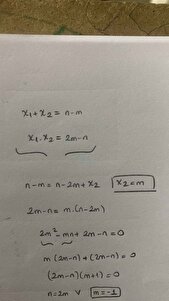 x₁+x₂ = n-m
x₁.x₂ = 2m-n
n-m = n-2m+x₂ x₂=m
2m-n = m.(n-2m)
2m²-mn+2m-n=0
m(2m-n)+(2m-n)=0
(2m-n)(m+1)=0
n=2m v m=-1